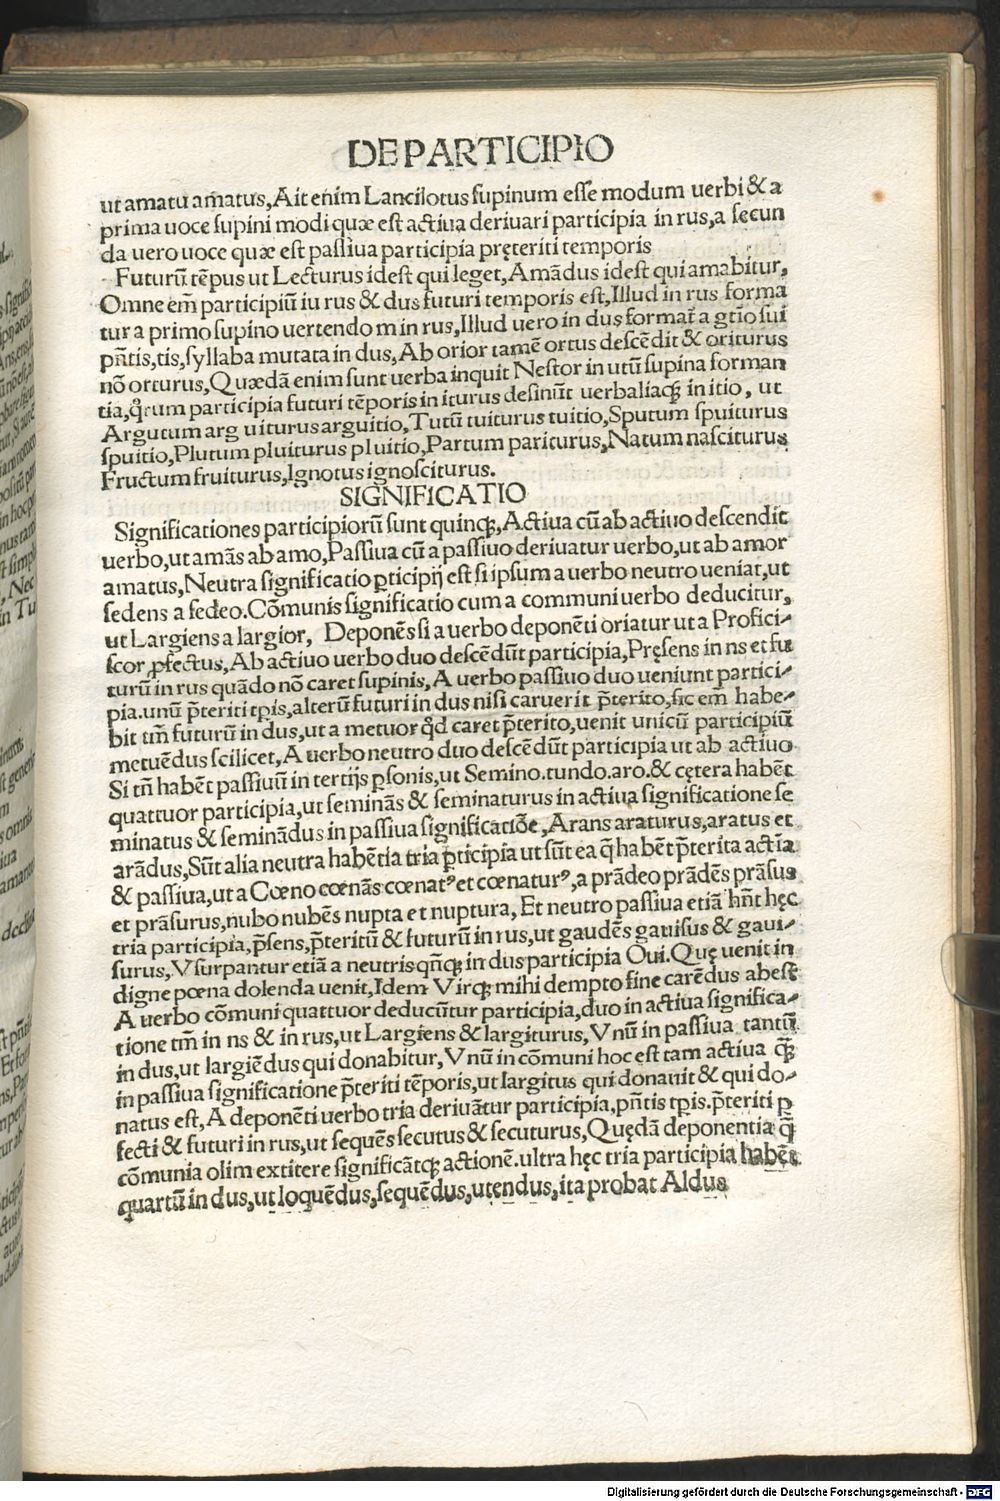 DE PARTICIPIO
ut amatu amatus, Ait enim Lancilotus supinum esse modum uerbi & a
prima uoce supini modi quæ est actiua deriuari participia in rus, a secun
da uero uoce quæ est passiua participia pręteriti temporis
Futurū tēpus ut Lecturus idest qui leget, Amādus idest qui amabitur,
Omne em̄ participiū iu rus & dus futuri temporis est, Illud in rus forma
tur a primo supino uertendo m in rus, Illud uero in dus format̄ a gtio sui
pn̄tis, tis, syllaba mutata in dus, Ab orior tamē ortus descēdit & oriturus
nō orturus, Quædā enim sunt uerba inquit Nestor in utū supina forman
tia, quorum participia futuri tēporis in iturus desinūt uerbaliaqꝫ in itio, ut
Argutum arg uiturus arguitio, Tutū tuiturus tuitio, Sputum spuiturus
spuitio, Plutum pluiturus pluitio, Partum pariturus, Natum nasciturus
Fructum fruiturus, Ignotus ignosciturus.
SIGNIFICATIO
Significationes participiorū sunt quinqꝫ, Actiua cū ab actiuo descendit
uerbo, ut amās ab amo, Passiua cū a passiuo deriuatur uerbo, ut ab amor
amatus, Neutra significatio ꝑticipij est si ipsum a uerbo neutro ueniat, ut
sedens a sedeo. Cōmunis significatio cum a communi uerbo deducitur,
ut Largiens a largior, Deponēs si a uerbo deponēti oriatur ut a Profici-
scor ꝓfectus, Ab actiuo uerbo duo descēdūt participia, Pręsens in ns et fu
turū in rus quādo nō caret supinis, A uerbo passiuo duo ueniunt partici-
pia. unū p̄teriti tꝑis, alterū futuri in dus nisi caruerit p̄terito, sic em̄ habe-
bit tm̄ futurū in dus, ut a metuor qd̄ caret p̄terito, uenit unicū participiū
metuēdus scilicet, A uerbo neutro duo descēdūt participia ut ab actiuo
Si tn̄ habēt passiuū in tertijs ꝑsonis, ut Semino. tundo. aro. & cętera habēt
quattuor participia, ut seminās & seminaturus in actiua significatione se
minatus & seminādus in passiua significatiōe, Arans araturus, aratus et
arādus, Sūt alia neutra habētia tria ꝑticipia ut sūt ea q̄ habēt p̄terita actīa
& passiua, ut a Cœno cœnās cœnatꝰ et cœnaturꝰ, a prādeo prādēs prāsus
et prāsurus, nubo nubēs nupta et nuptura, Et neutro passiua etiā hn̄t hęc
tria participia, p̄sens, p̄teritū & futurū in rus, ut gaudēs gauisus & gaui-
surus, Vsurpantur etiā a neutris qn̄qꝫ in dus participia Oui. Quę uenit in
digne pœna dolenda uenit, Idem Virqꝫ mihi dempto fine carēdus abest
A uerbo cōmuni quattuor deducūtur participia, duo in actiua significa-
tione tm̄ in ns & in rus, ut Largiens & largiturus, Vnū in passiua tantū
in dus, ut largiēdus qui donabitur, Vnū in cōmuni hoc est tam actiua q̄ꝫ
in passiua significatione p̄teriti tēporis, ut largitus qui donauit & qui do-
natus est, A deponēti uerbo tria deriuātur participia, pn̄tis tꝑis. p̄teriti ꝑ
fecti & futuri in rus, ut sequēs secutus & secuturus, Quędā deponentia q̄
cōmunia olim extitere significātqꝫ actionē. ultra hęc tria participia habēt
quartū in dus, ut loquēdus, sequēdus, utendus, ita probat Aldus
Digitalisierung gefördert durch die Deutsche Forschungsgemeinschaft - DFG